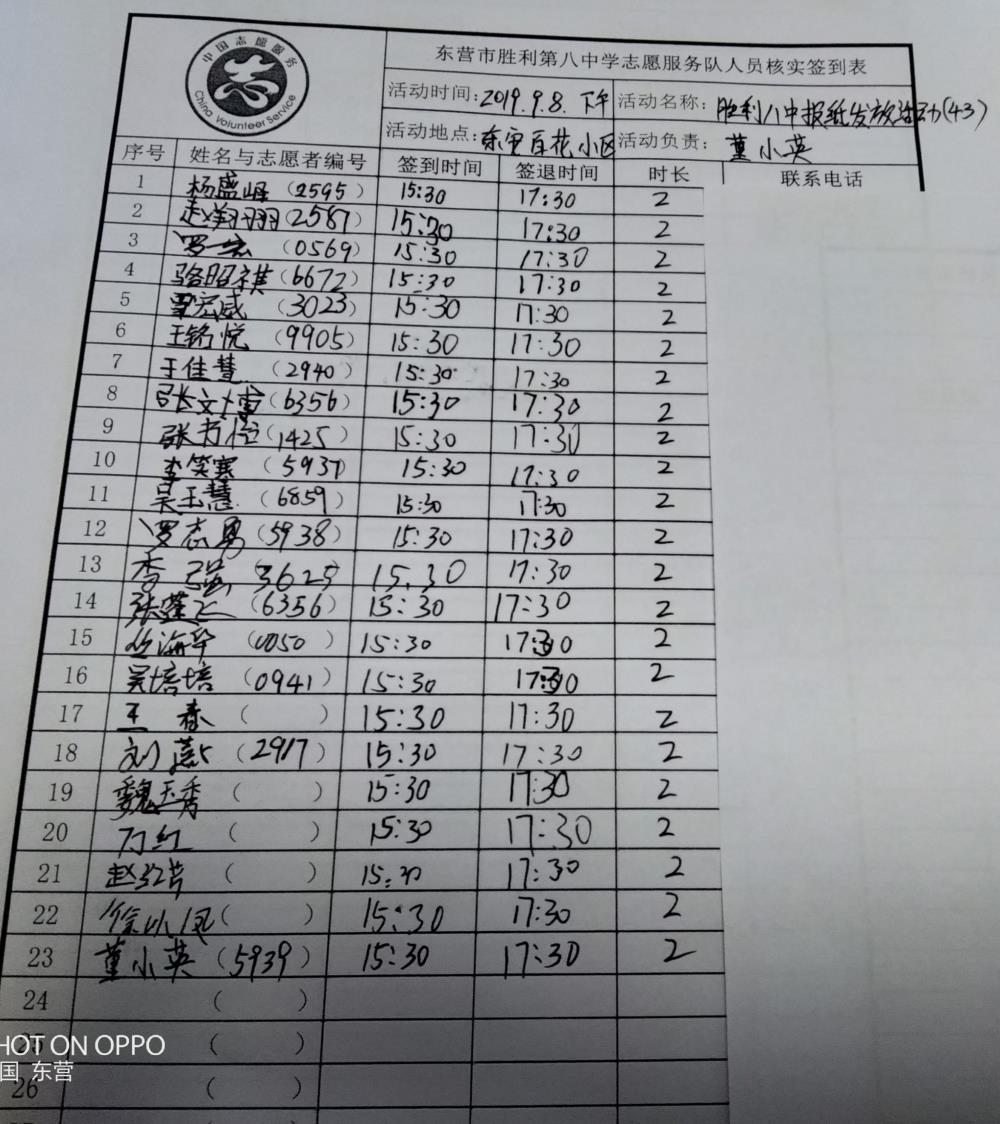 中国志愿服务
China Volunteer Service
东营市胜利第八中学志愿服务队人员核实签到表
活动时间：2019.9.8.下午 活动名称：胜利八中报纸发放活动(43)
活动地点：东营百花小区 活动负责：董小英
序号 姓名与志愿者编号 签到时间 签退时间 时长 联系电话
1 杨盛峰（2595） 15:30 17:30 2
2 赵翔翔（2587） 15:30 17:30 2
3 罗宏（0569） 15:30 17:30 2
4 骆昭祺（6672） 15:30 17:30 2
5 宏威（3023） 15:30 17:30 2
6 王铭悦（9905） 15:30 17:30 2
7 王佳慧（2940） 15:30 17:30 2
8 张文博（6356） 15:30 17:30 2
9 张（1425） 15:30 17:30 2
10 李笑寒（5937） 15:30 17:30 2
11 吴玉慧（6859） 15:30 17:30 2
12 罗志勇（5938） 15:30 17:30 2
13 李强 3625 15.30 17:30 2
14 张莲飞（6356） 15:30 17:30 2
15 丛海华（0050） 15:30 17:30 2
16 吴培培（0941） 15:30 17:30 2
17 王森（ ） 15:30 17:30 2
18 刘燕（2917） 15:30 17:30 2
19 魏玉秀（ ） 15:30 17:30 2
20 红（ ） 15:30 17:30 2
21 赵红芳（ ） 15:30 17:30 2
22 徐小凤（ ） 15:30 17:30 2
23 董小英（5939） 15:30 17:30 2
24 （ ）
25 （ ）
26 （ ）
HOT ON OPPO
国 东营